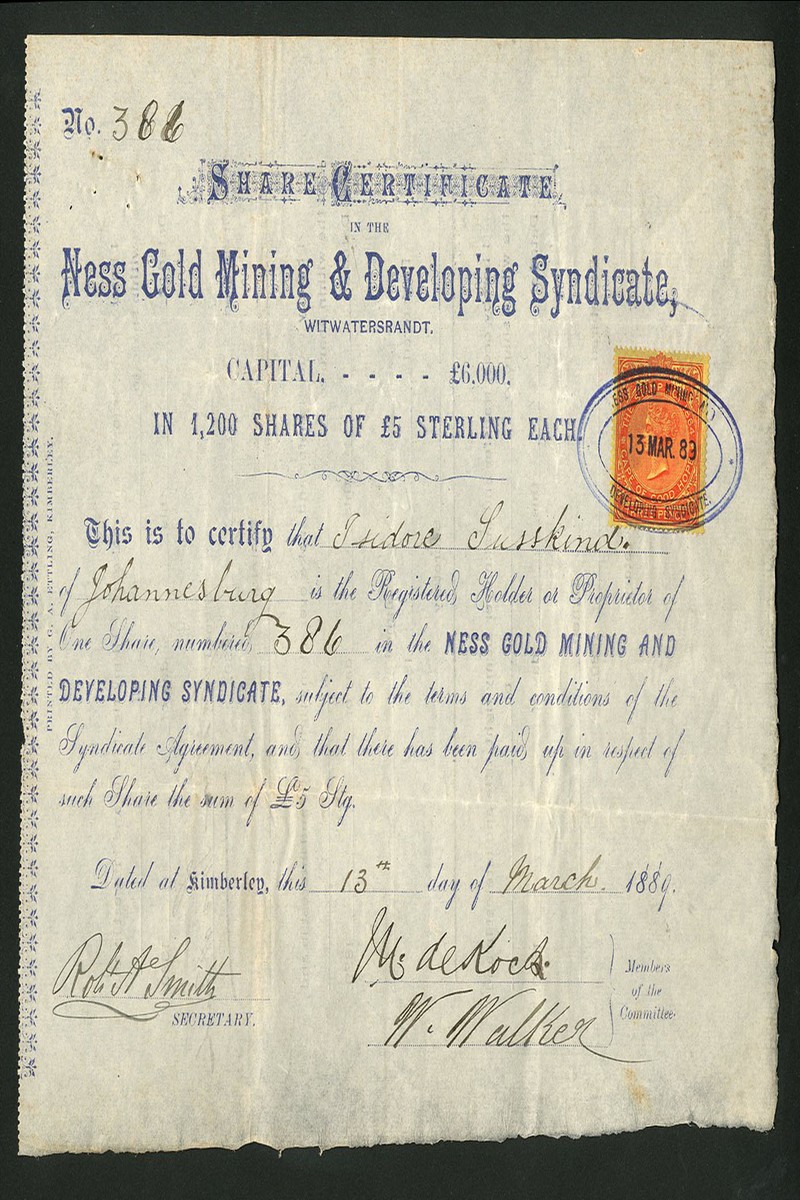 No. 386
SHARE CERTIFICATE
IN THE
Ness Gold Mining & Developing Syndicate,
WITWATERSRANDT.
CAPITAL. - - - - £6.000.
IN 1,200 SHARES OF £5 STERLING EACH.
NESS GOLD MINING AND
13 MAR. 89
CAPE OF GOOD HOPE
DEVELOPING SYNDICATE.
This is to certify that Isidore Susskind.
of Johannesburg is the Registered Holder or Proprietor of
One Share, numbered 386 in the NESS GOLD MINING AND
DEVELOPING SYNDICATE, subject to the terms and conditions of the
Syndicate Agreement, and that there has been paid up in respect of
such Share the sum of £5 Stg.
Dated at Kimberley, this 13th day of March. 1889.
Robt A Smith
SECRETARY.
M. de Kock.
W. Walker
Members
of the
Committee.
PRINTED BY G. A. ETTLING, KIMBERLEY.